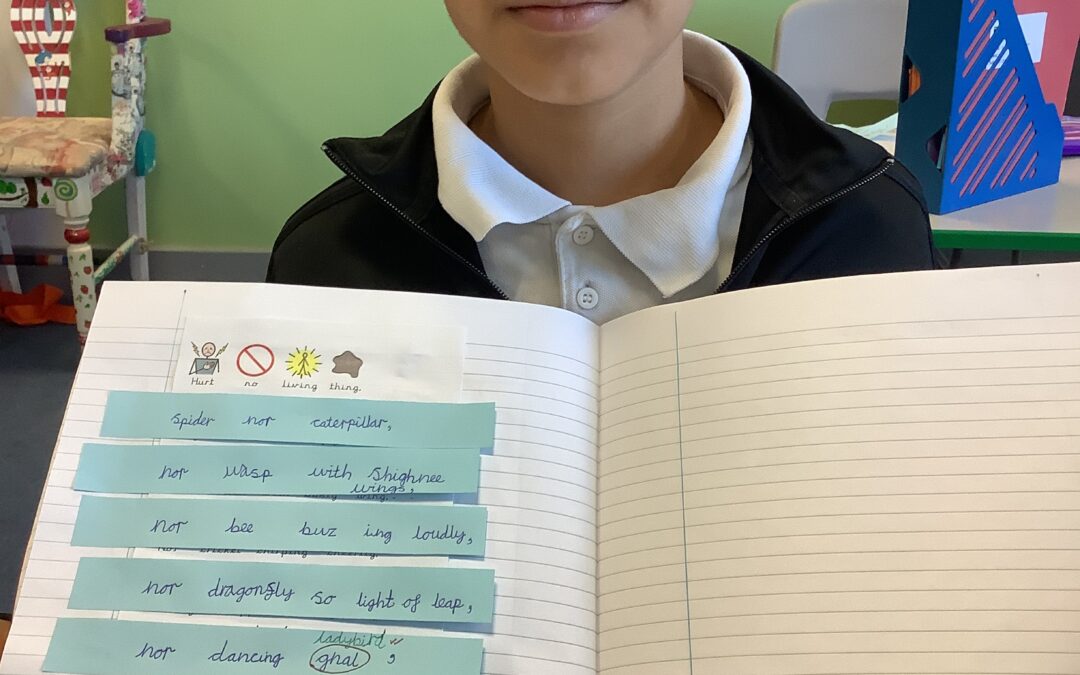 Hurt no living thing.
spider nor caterpillar,
nor wasp with shighnee
wings,
Nor bee buz ing loudly,
nor dragonfly so light of leap,
ladybird
nor dancing gnal ,